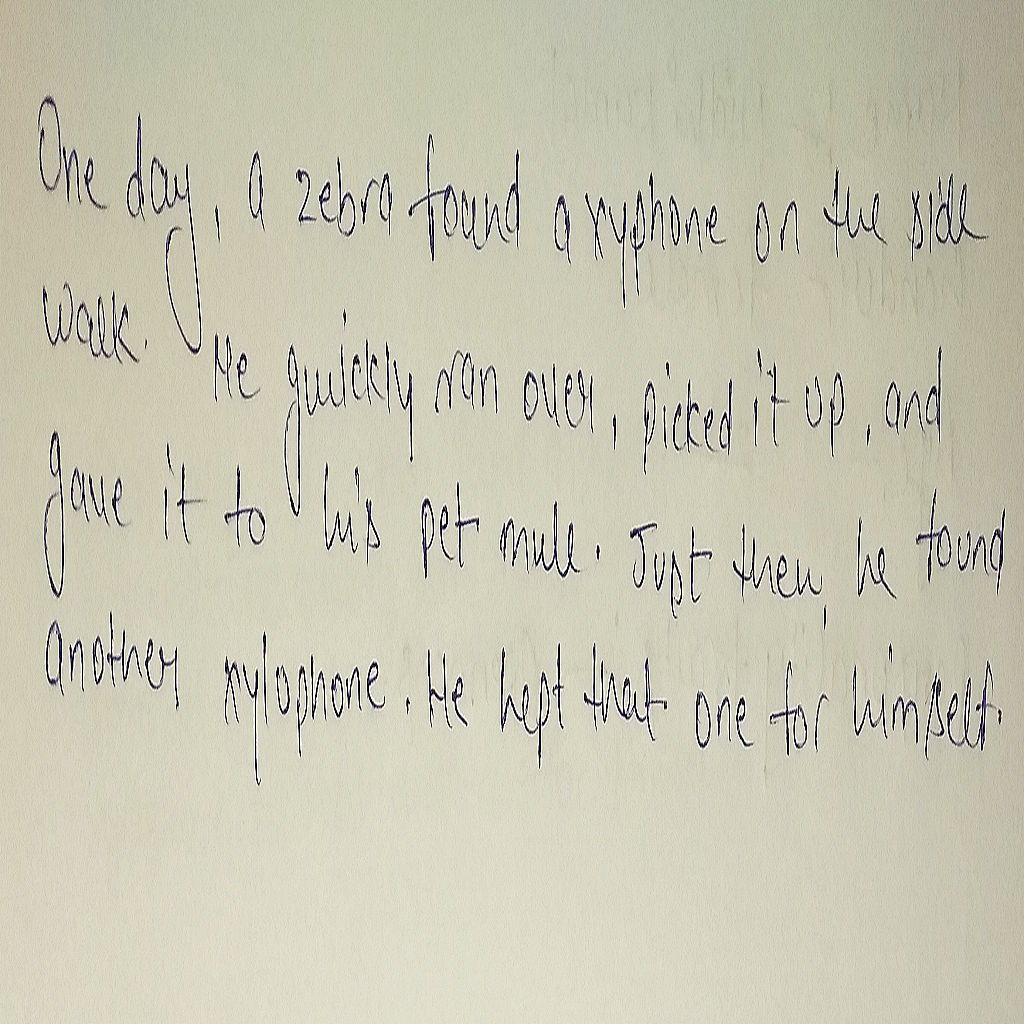 One day, a zebra found a xyphone on the side
walk. He quickly ran over, picked it up, and
gave it to his pet mule. Just then, he found
another xylophone. He kept that one for himself.